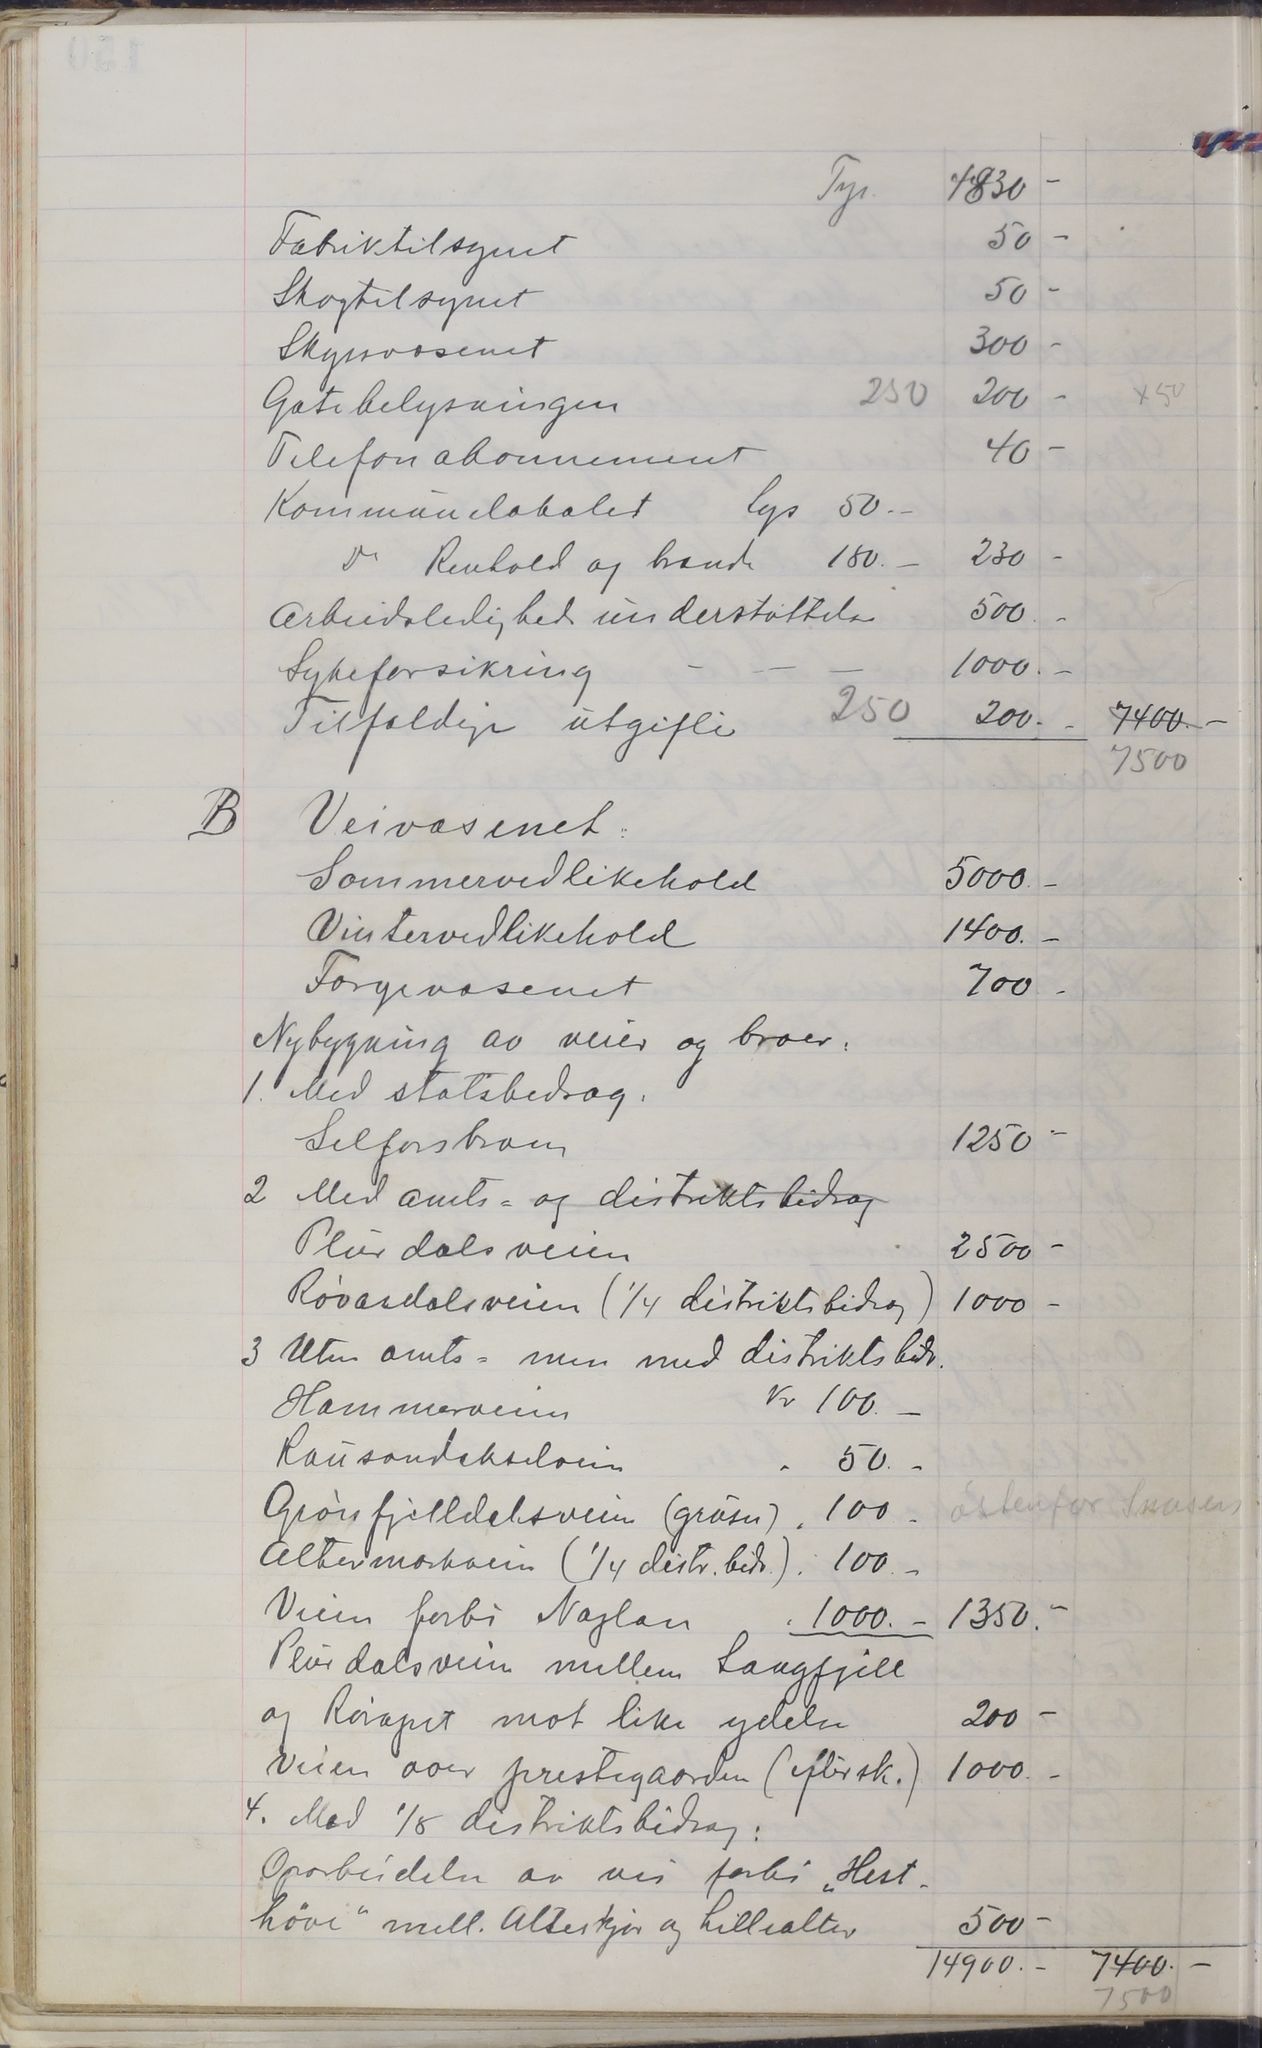 4830 -
Fabriktilsynet 50 -
Skogtilsynet 50 -
Skysvæsenet 300 -
Gatebelysningen 250 200 - +50
Telefonabonnement 40 -
Kommunelokalet lys 50.-
Do Renhold og brænde 180.- 230 -
Arbeidsledigheds understøttelse 500.-
Sykeforsikring - - - 1000.-
Tilfældige utgifter 250 200.- 7400.-
7500
B Veivæsenet:
Sommervedlikehold 5000.-
Vintervedlikehold 1400.-
Færgevæsenet 700.-
Nybygning av veier og broer:
1. Med statsbedrag.
Selforsbroen 1250 -
2 Med amts= og distriktsbidrag
Plurdalsveien 2500 -
Røvasdalsveien (1/4 distriktsbidrag) 1000 -
3 Uten amts= men med distriktsbidr.
Hammerveien Kr 100.-
Rausandakselveien " 50.-
Grønfjelldalsveien (grusn) " 100.- östenfor
Altermarkveien (1/4 distr. bidr.) " 100.-
Veien forbi Naglan " 1000.- 1350.-
Plurdalsveien mellem Langfjell
og mot like ydelse 200 -
Veien over prestegaarden (eftersk.) 1000.-
4. Med 1/8 distriktsbidrag:
Oparbeidelse av vei forbi "Hest-
høve" mell. Alterskjær og Lillealter 500 -
14900.- 7400.-
7500